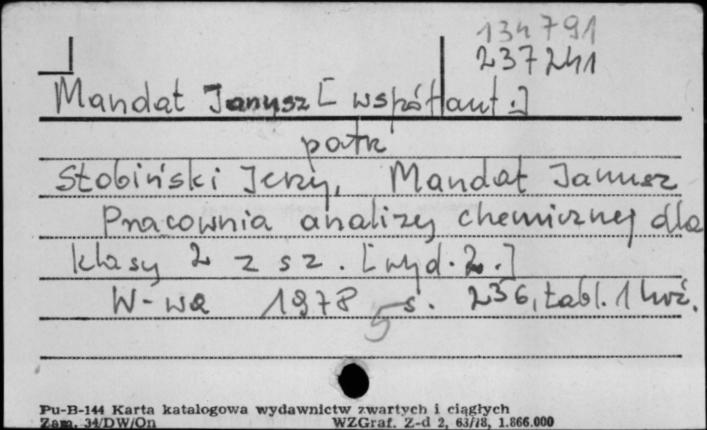 134791
237241
Mandat Janusz [współaut.]
patrz
Stobiński Jerzy, Mandat Janusz
Pracownia analizy chemicznej dla
klasy 2 z s z. [wyd. 2.]
W-wa 1978 s. 236, tabl. 1 luź.
5
Pu-B-144 Karta katalogowa wydawnictw zwartych i ciągłych
Zam. 34/DW/On WZGraf. Z-d 2, 63/78, 1.866.000